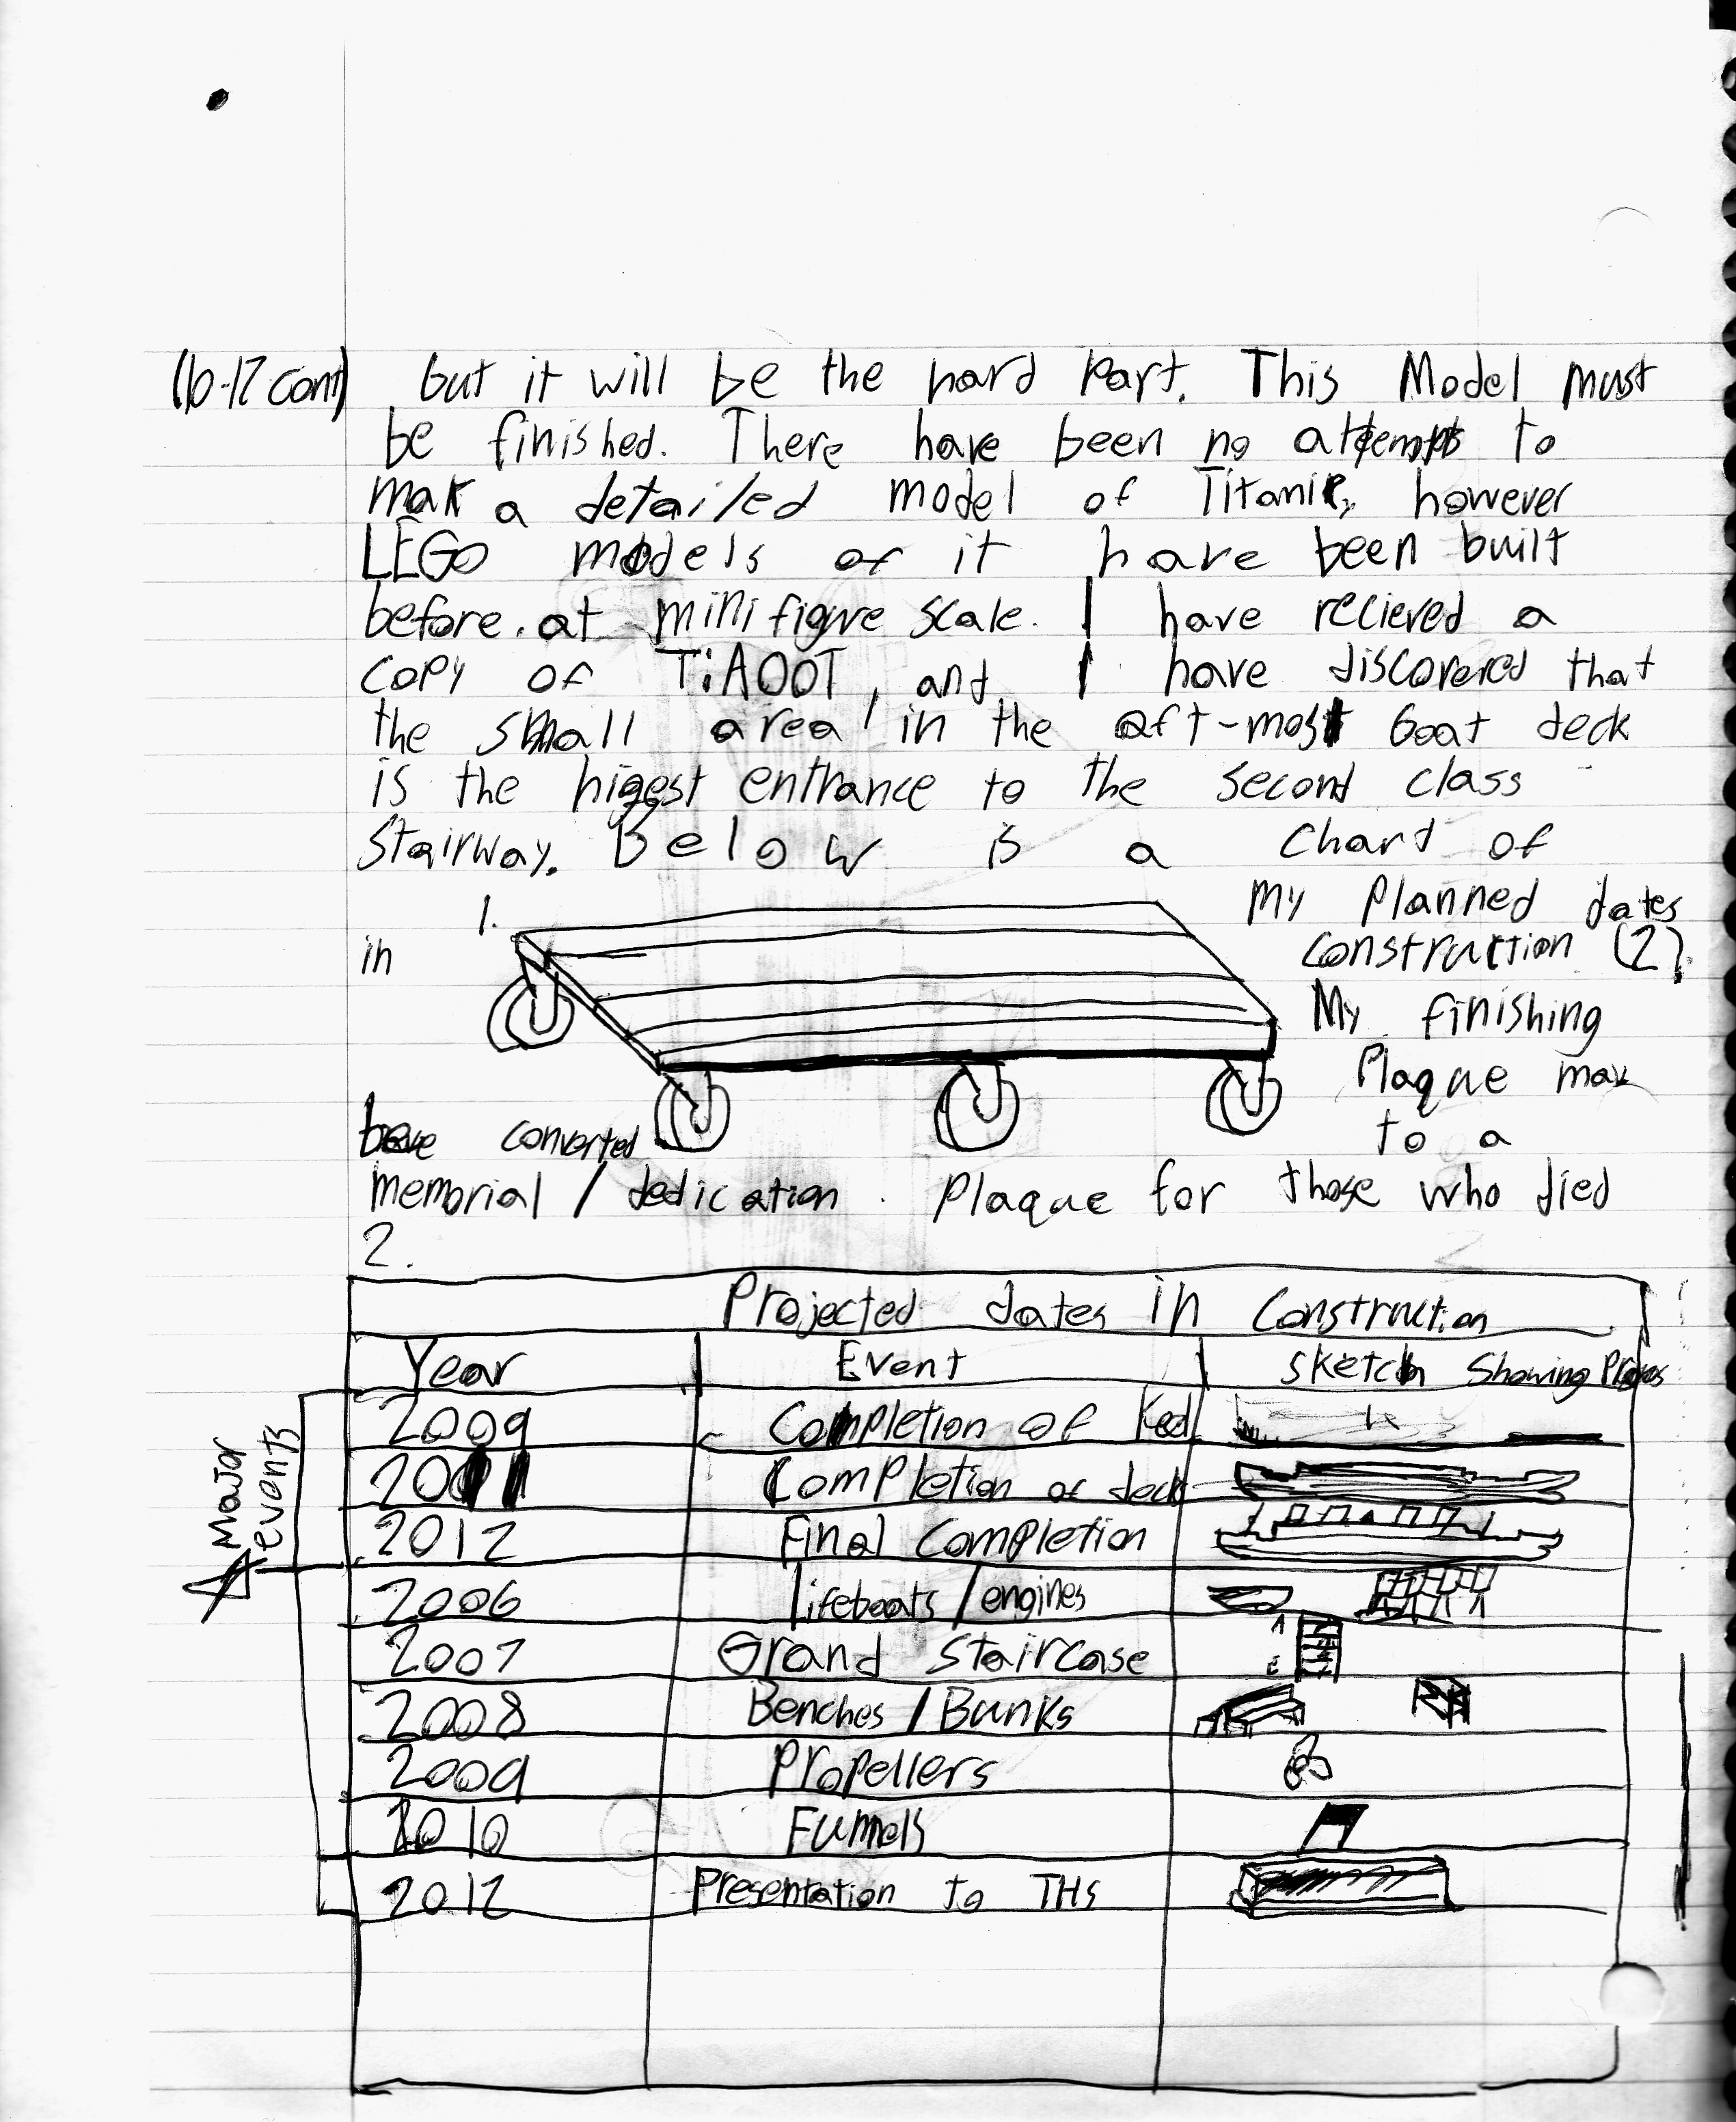 (10-17 cont) but it will be the hard part. This Model must
be finished. There have been no attempts to
mak a detailed model of Titanic, however
LEGO models of it have been built
before. at minifigure scale. I have recieved a
copy of TiAOOT, and I have discovered that
the small area in the aft-most boat deck
is the higest entrance to the second class
stairway. Below is a chart of
my planned dates
in
construction (2).
1.
My finishing
Plaque may
be converted to a
memorial / dedication. plaque for those who died
2.
Projected dates in Construction
Year Event Sketch Showing
2009 Completion of Keel
2011 Completion of deck
2012 Final Completion
2006 lifeboats / engines
2007 Grand Staircase
2008 Benches / Bunks
2009 Propellers
2010 Funnels
2012 Presentation to THS
Major
events